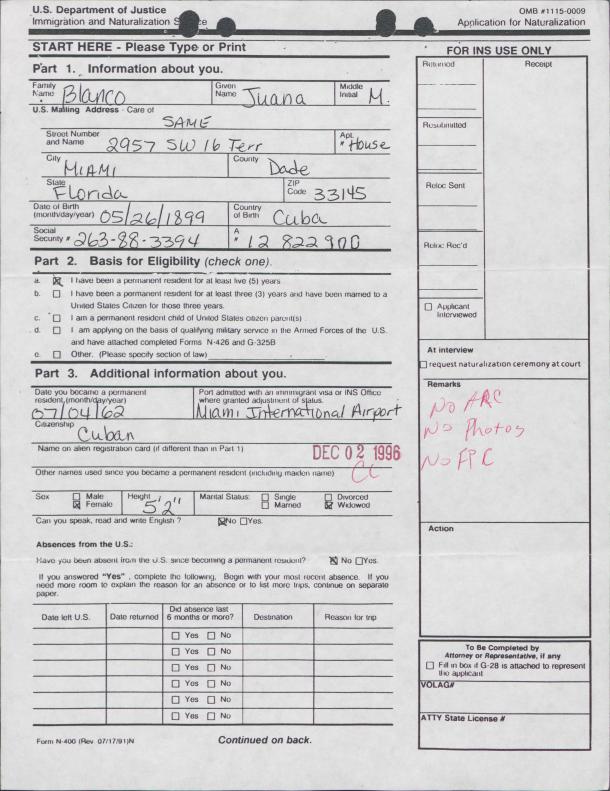 U.S. Department of Justice
Immigration and Naturalization
OMB #1115-0009
Application for Naturalization
START HERE - Please Type or Print
Part 1. Information about you.
Family Name Blanco
Given Name Juana
Middle Initial M.
U.S. Mailing Address - Care of
SAME
Street Number and Name 2957 SW 16 Terr
Apt. # House
City MIAMI
County Dade
State Florida
ZIP Code 33145
Date of Birth (month/day/year) 05/26/1899
Country of Birth Cuba
Social Security # 263-88-3394
A # 12 822 900
Part 2. Basis for Eligibility (check one).
a. ☒ I have been a permanent resident for at least five (5) years
b. ☐ I have been a permanent resident for at least three (3) years and have been married to a
United States Citizen for those three years.
c. ☐ I am a permanent resident child of United States citizen parent(s)
d. ☐ I am applying on the basis of qualifying military service in the Armed Forces of the U.S.
and have attached completed Forms N-426 and G-325B
e. ☐ Other. (Please specify section of law)
Part 3. Additional information about you.
Date you became a permanent resident (month/day/year) 07/04/62
Port admitted with an immigrant visa or INS Office where granted adjustment of status.
Miami International Airport
Citizenship
Cuban
Name on alien registration card (if different than in Part 1)
DEC 02 1996
Other names used since you became a permanent resident (including maiden name)
Sex ☐ Male ☒ Female
Height 5'2"
Marital Status: ☐ Single ☐ Married ☐ Divorced ☒ Widowed
Can you speak, read and write English ? ☒No ☐Yes.
Absences from the U.S.:
Have you been absent from the U.S. since becoming a permanent resident? ☒ No ☐Yes.
If you answered "Yes" , complete the following, Begin with your most recent absence. If you
need more room to explain the reason for an absence or to list more trips, continue on separate
paper.
Date left U.S.
Date returned
Did absence last 6 months or more?
Destination
Reason for trip
☐ Yes ☐ No
☐ Yes ☐ No
☐ Yes ☐ No
☐ Yes ☐ No
☐ Yes ☐ No
☐ Yes ☐ No
Form N-400 (Rev. 07/17/91)N
Continued on back.
FOR INS USE ONLY
Returned
Receipt
Resubmitted
Reloc Sent
Reloc Rec'd
☐ Applicant Interviewed
At interview
☐ request naturalization ceremony at court
Remarks
No ARC
No Photos
No FPC
Action
To Be Completed by
Attorney or Representative, if any
☐ Fill in box if G-28 is attached to represent
the applicant
VOLAG#
ATTY State License #